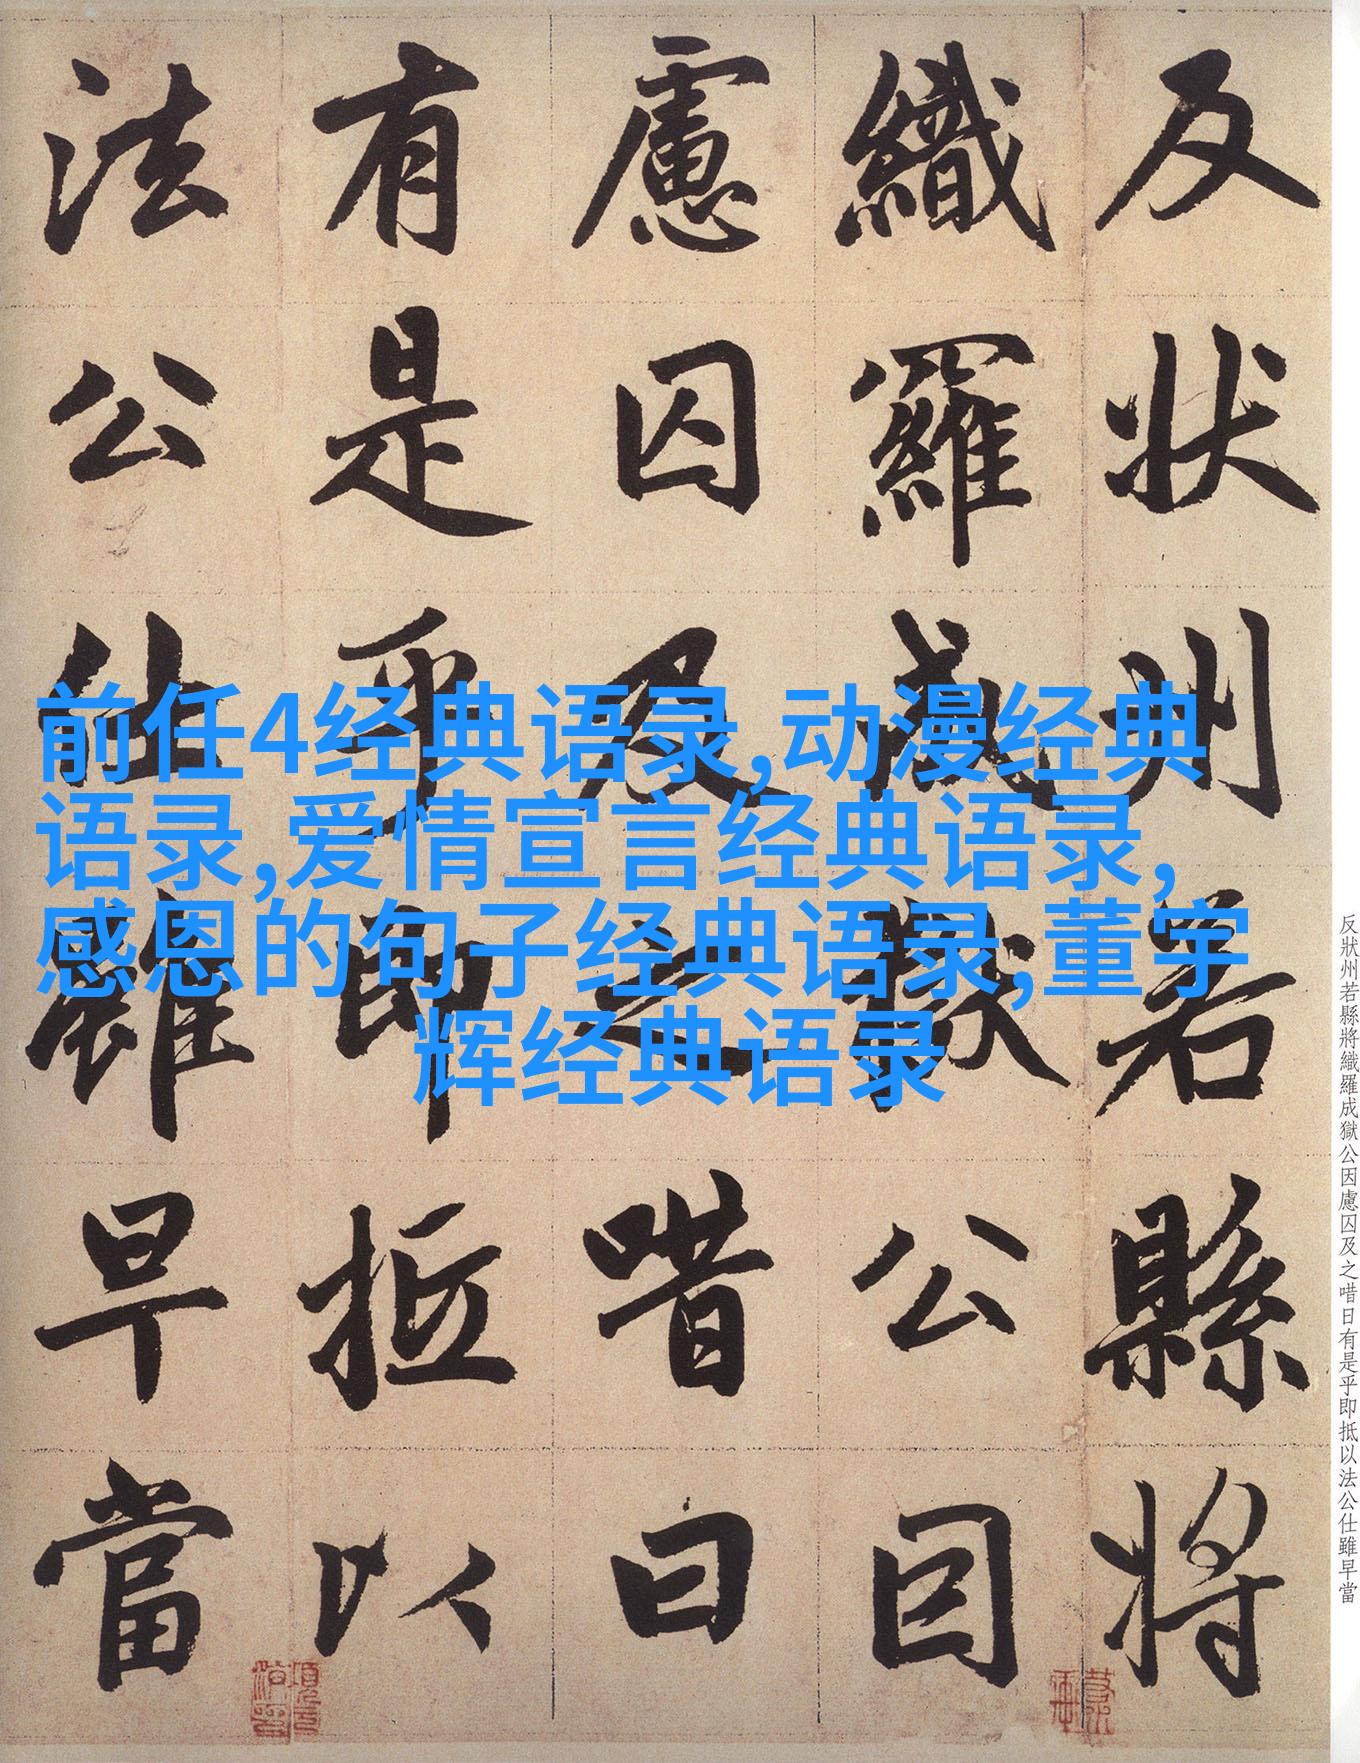 反狀州若縣將
織羅成獄公因
慮囚及之唶曰
有是乎即抵以
法公仕雖早當
前任4经典语录,动漫经典
语录,爱情宣言经典语录,
感恩的句子经典语录,董宇
辉经典语录
反狀州若縣將織羅成獄公因慮囚及之唶日有是乎即抵以法公仕雖早當